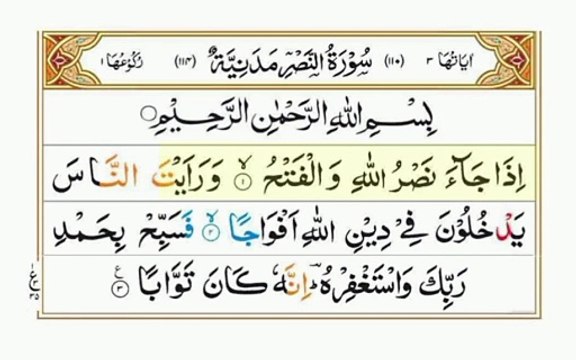 اٰيَاتُهَا ٣ (١١٠) سُوْرَةُ النَّصْرِ مَدَنِيَّةٌ (١١٤) رُكُوْعُهَا ١
بِسْمِ اللهِ الرَّحْمٰنِ الرَّحِيْمِ
اِذَا جَآءَ نَصْرُ اللهِ وَالْفَتْحُ ۙ ١ وَرَاَيْتَ النَّاسَ
يَدْخُلُوْنَ فِيْ دِيْنِ اللهِ اَفْوَاجًا ۙ ٢ فَسَبِّحْ بِحَمْدِ
رَبِّكَ وَاسْتَغْفِرْهُ ؕ اِنَّهٗ كَانَ تَوَّابًا ٣